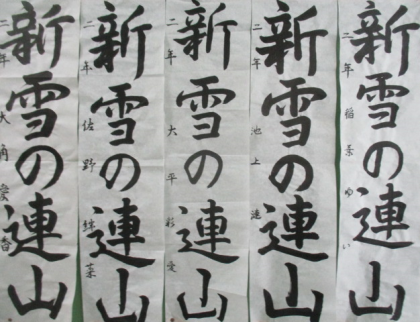 新雪の連山
二年 稲葉 ゆい
新雪の連山
二年 池上 連
新雪の連山
二年 大平 彩愛
新雪の連山
二年 佐野 珠菜
新雪の連山
二年 大角 愛香